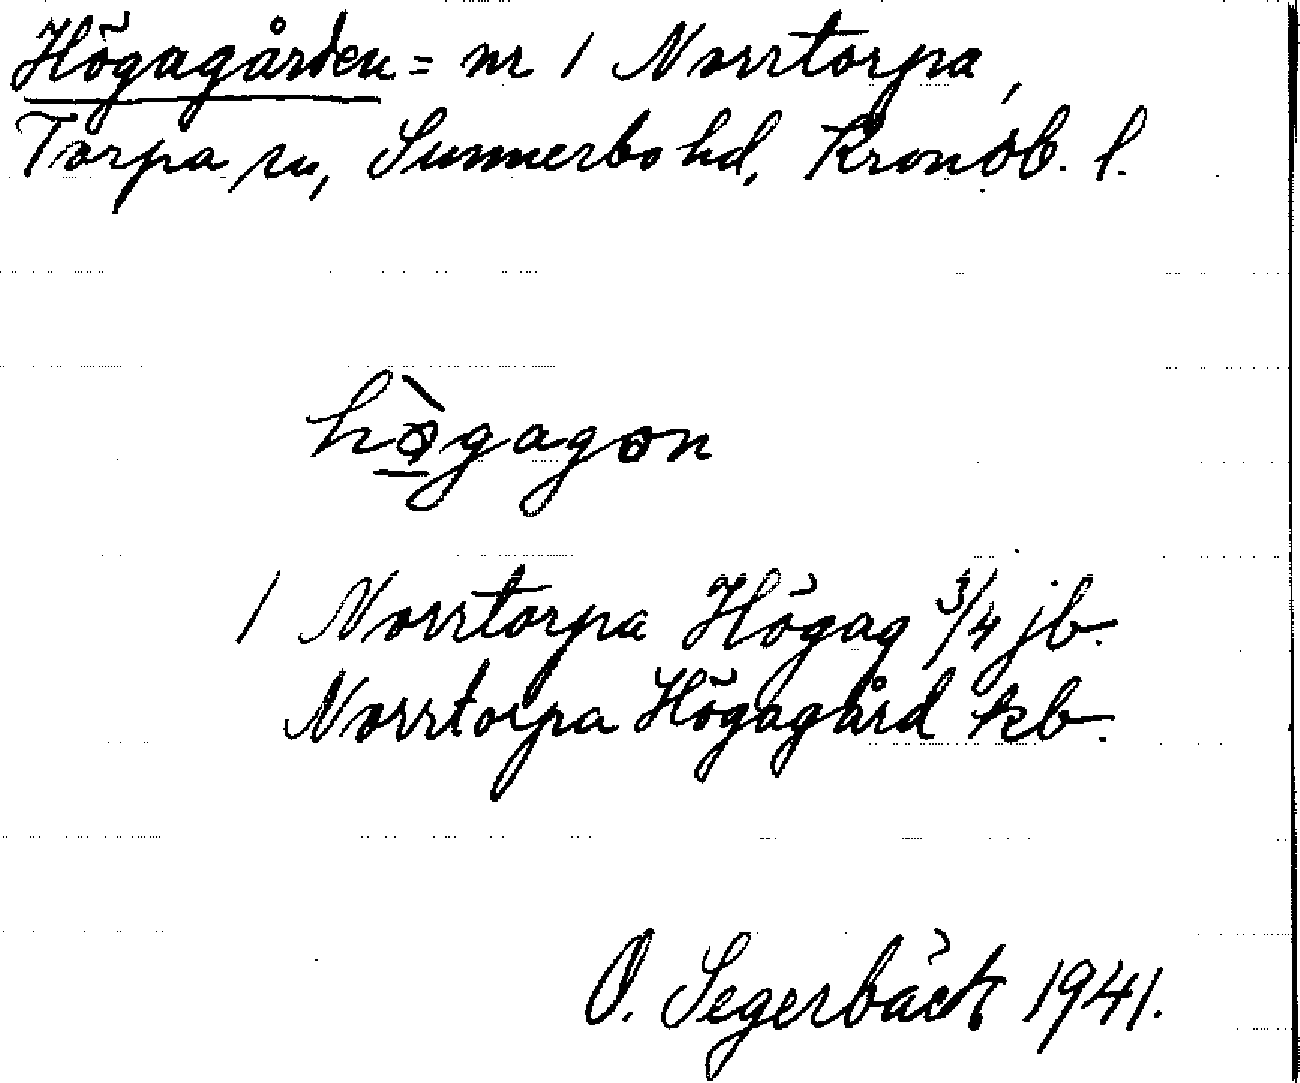 Högagården = nr 1 Norrtorpa,
Torpa sn, Sunnerbo hd, Kronob. l.
hø̠̀gagon
1 Norrtorpa Högag 3/4 jb.
Norrtorpa Högagård kb.
O. Segerbäck 1941.